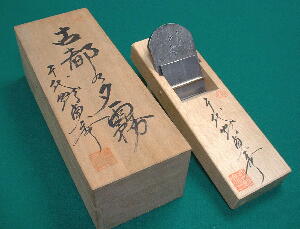 古都の夕霧
千代鶴貞秀
千代鶴貞秀